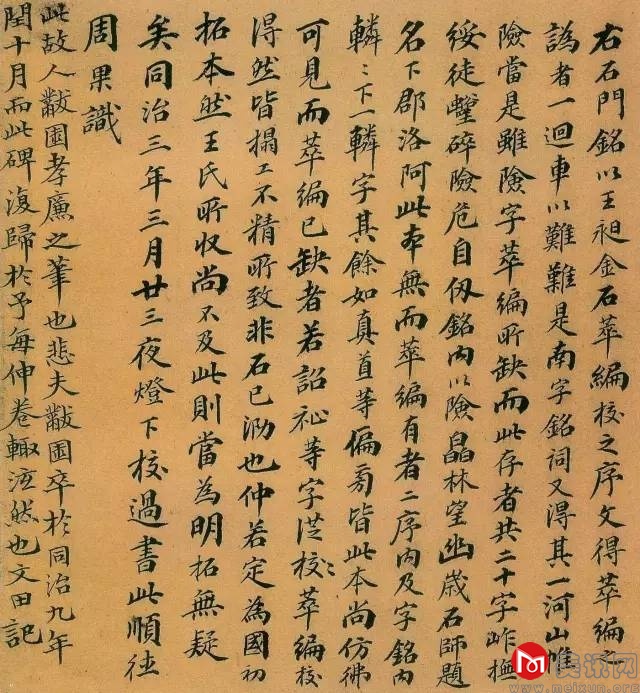 右石門銘以王昶金石萃編校之序文得萃編
譌者一迴車以難難是南字銘詞又得其一河山帷
險當是雖險字萃編所缺而此存者共二十字岞橅
綏徒碎險危自仭銘內以險晶林望幽歲石師題
名下郡洛阿此本無而萃編有者二序內及字銘內
轔〻下一轔字其餘如真首等偏旁皆此本尚仿彿
可見而萃編已缺者若詔祉等字從校〻萃編校
得然皆搨工不精所致非石已泐也仲若定為國初
拓本然王氏所收尚不及此則當為明拓無疑
矣同治三年三月廿三夜燈下校過書此順德
周果識
此故人黻園孝廉之筆也悲夫黻園卒於同治九年
閏十月而此碑復歸於予每伸卷輒泫然也文田記
美讯网
www.meixun.org